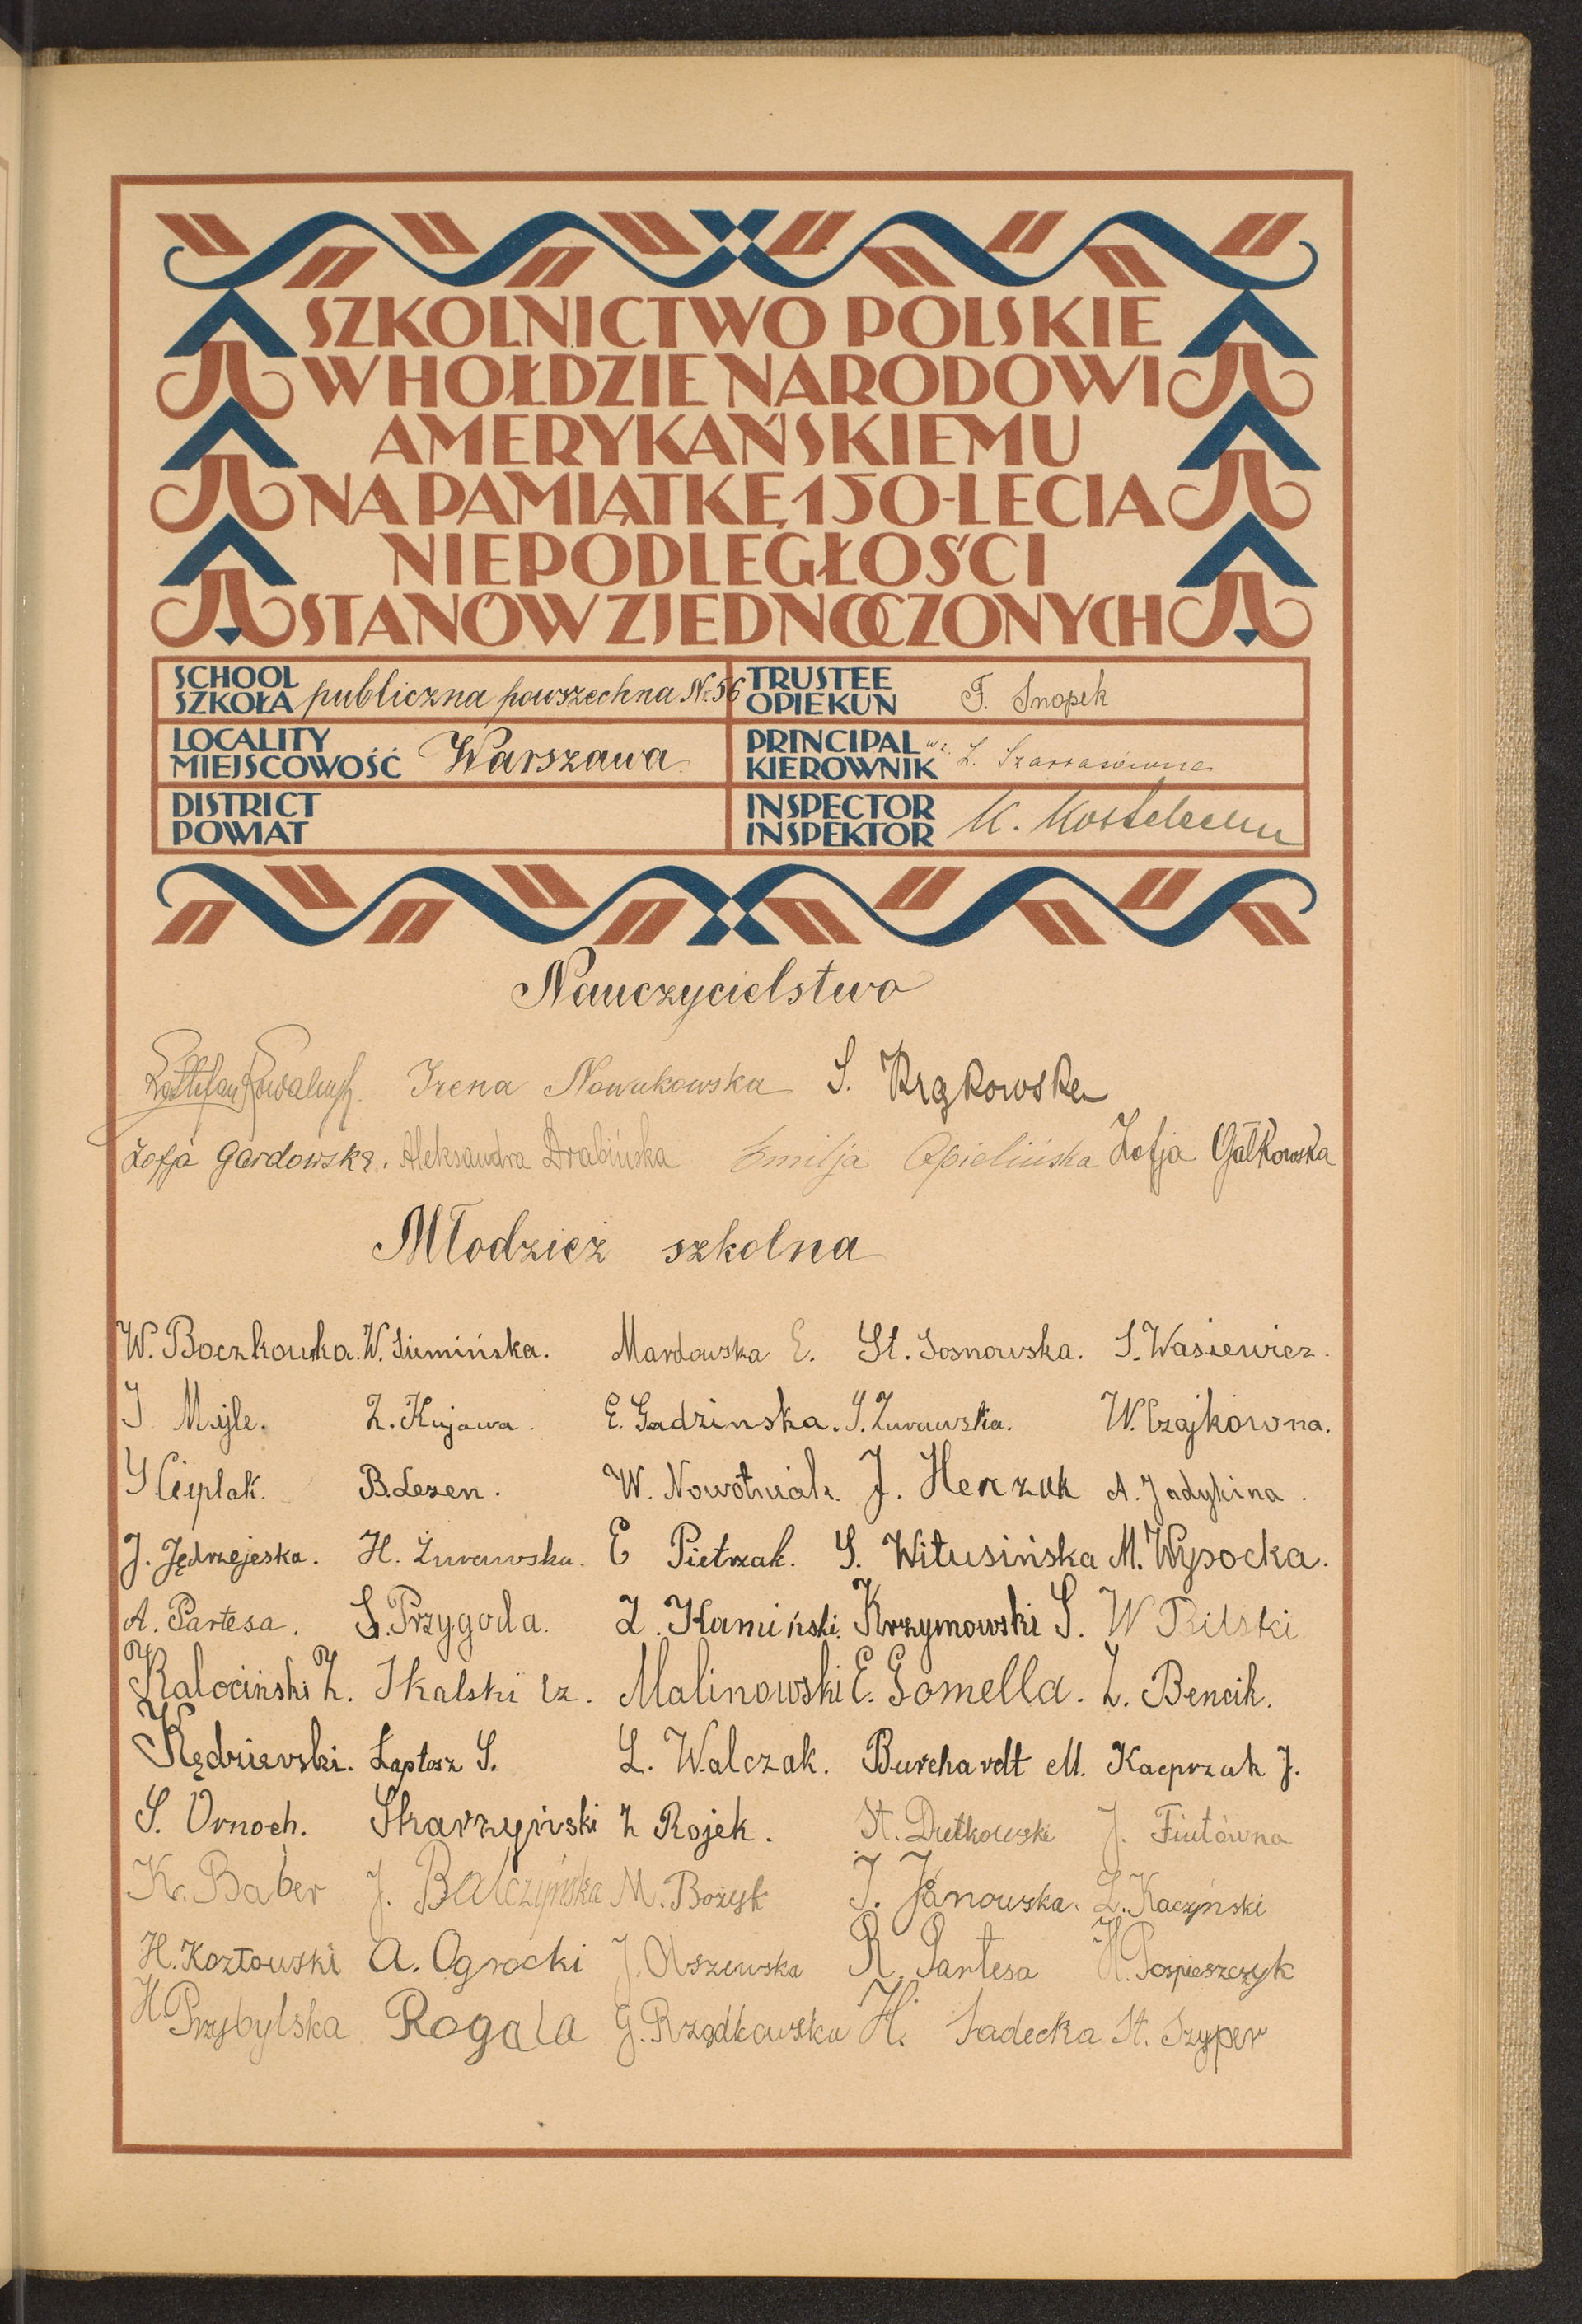 SZKOLNICTWO POLSKIE
W HOŁDZIE NARODOWI
AMERYKAŃSKIEMU
NA PAMIĄTKĘ 150-LECIA
NIEPODLEGŁOŚCI
STANÓW ZJEDNOCZONYCH
SCHOOL
SZKOŁA publiczna powszechna Nr. 56
TRUSTEE
OPIEKUN F. Snopek
LOCALITY
MIEJSCOWOŚĆ Warszawa
PRINCIPAL
KIEROWNIK wz. Z. Szarrasówna
DISTRICT
POWIAT
INSPECTOR
INSPEKTOR K.
Nauczycielstwo
Irena Nowakowska S. Krąkowska
Zofja Gardowska. Aleksandra Drabińska Emilja Opielińska Zofja Gałkowska
Młodzież szkolna
W. Boczkowska. W. Siemińska. Mardowska E. St. Sosnowska. S. Wasiewicz.
J Myle. Z. Kujawa. E. Gadzinska. S. Żurawska. W. Czajkówna.
Cieplak. B. Lesen. W. Nowotniak. J. Herzuk A. Jadykina.
J. Jędrzejeska. H. Żurawska. E Pietrzak. S. Witusińska M. Wysocka.
A. Partesa. S. Przygoda. Z. Kamiński. Krzymowski S. W Bilski
Kalociński Z. Skalski Cz. Malinowski E. Gomella. Z. Bencik.
Kędzierski. Łaptosz S. L. Walczak. Burchardt M. Kacprzak J.
S. Ornoch. Skarzyński Z Rojek. St. Dutkowski J. Fiutówna
K. Baber J. Balczyńska M. Bożyk J. Janowska. Z. Kaczyński
H. Kozłowski A. Ogrocki J. Olszewska R. Partesa H. Pospieszczyk
H Przybylska Rogala G. Rządkowska H. Sadecka St. Szyper